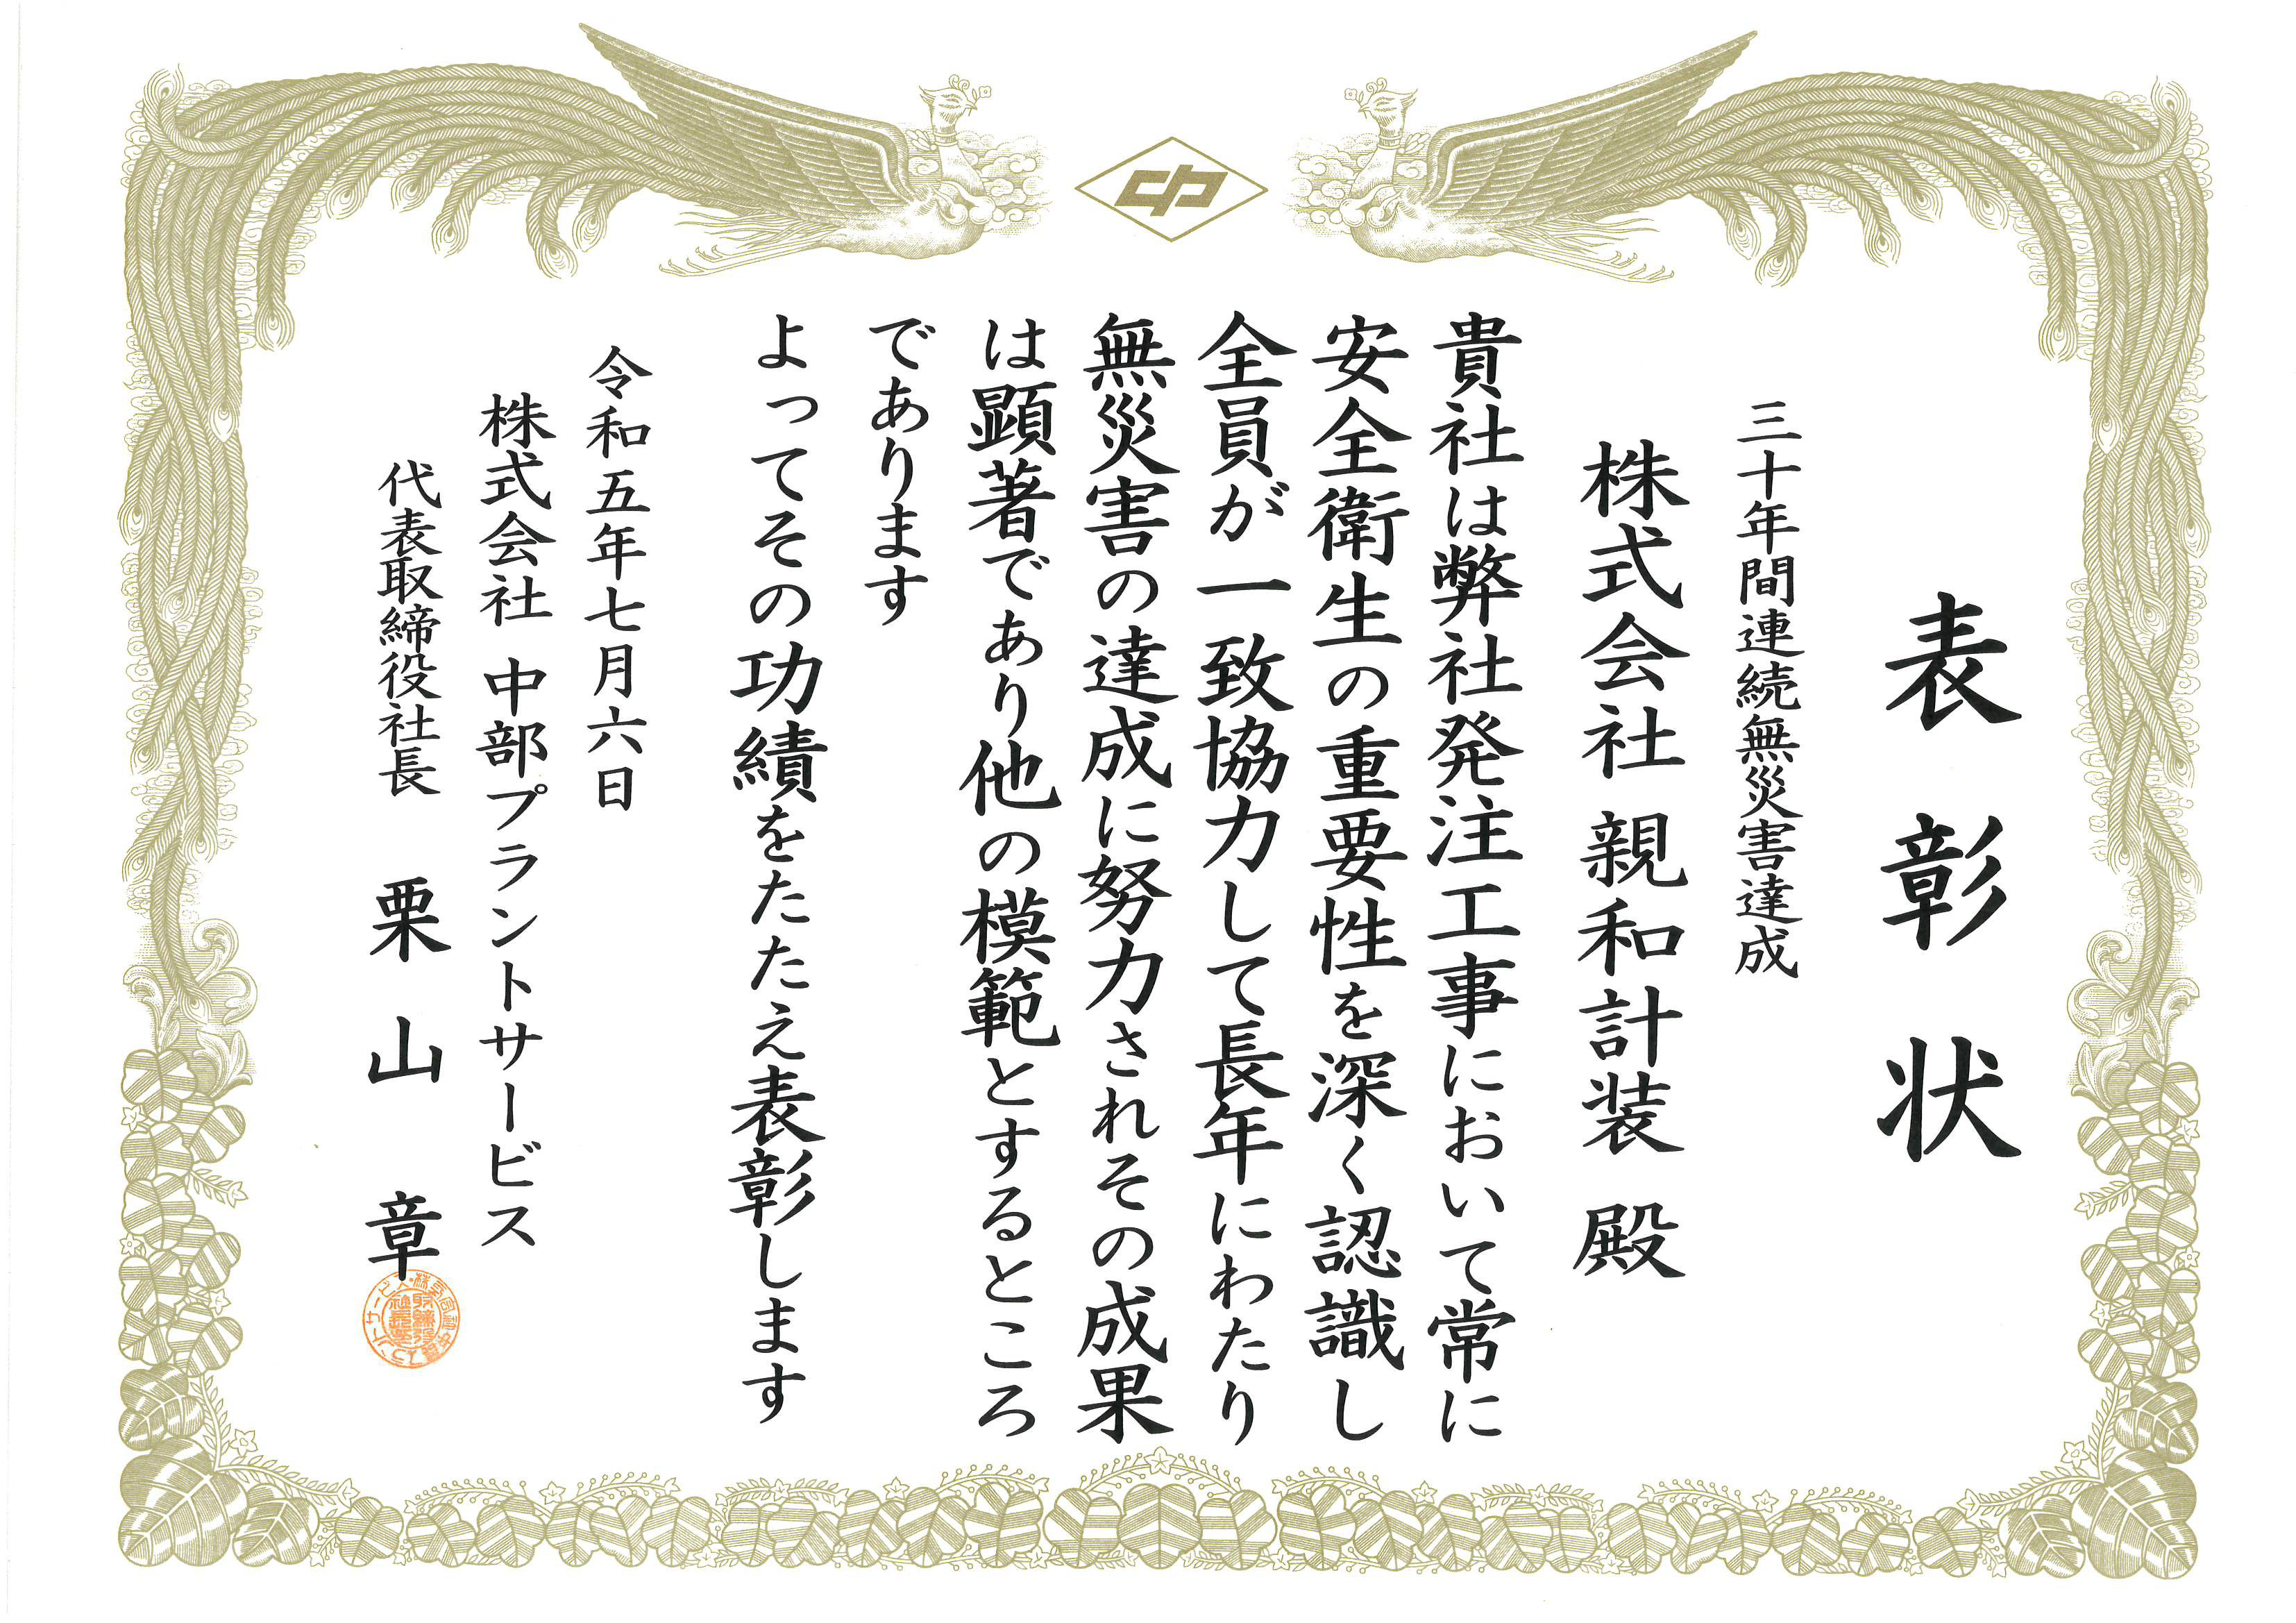 表彰状
三十年間連続無災害達成
株式会社 親和計装 殿
貴社は弊社発注工事において常に
安全衛生の重要性を深く認識し
全員が一致協力して長年にわたり
無災害の達成に努力されその成果
は顕著であり他の模範とするところ
であります
よってその功績をたたえ表彰します
令和五年七月六日
株式会社 中部プラントサービス
代表取締役社長 栗山章
中